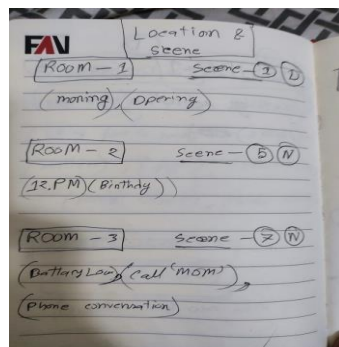 FAN
Location &
Scene
Room - 1 Scene - 1 D
(moning), (Opering)
Room - 2 Scene - 5 N
(12.PM) (Birthdy))
Room - 3 Sceane - 7 N
(Battary Low), (call "MOM"),
(Phone conversation)